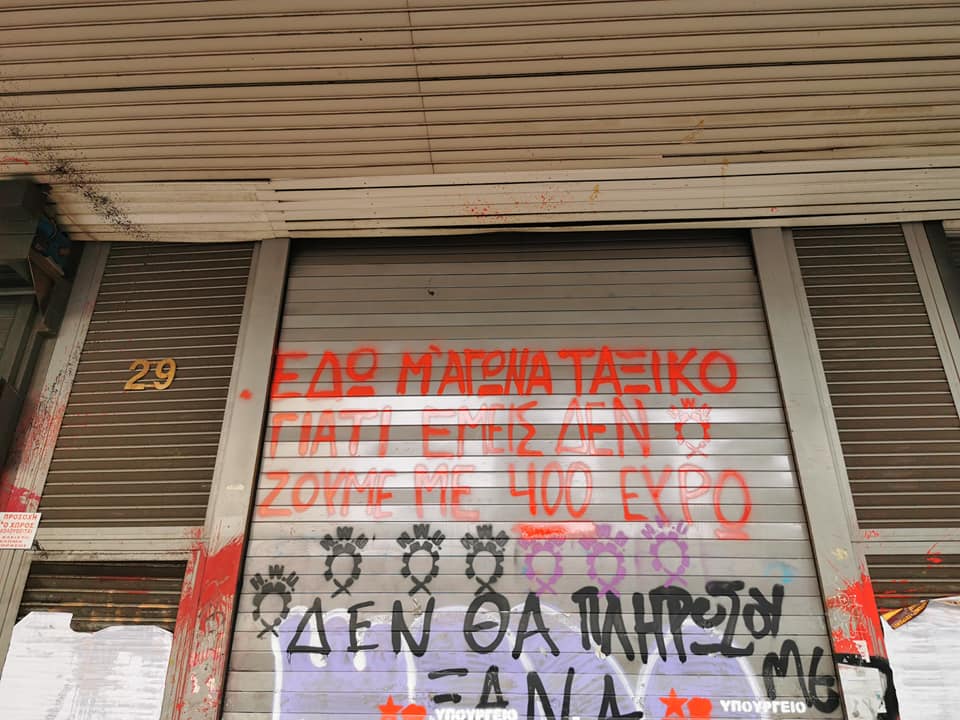 29
ΕΔΩ Μ'ΑΓΩΝΑ ΤΑΞΙΚΟ
ΓΙΑΤΙ ΕΜΕΙΣ ΔΕΝ
ΖΟΥΜΕ ΜΕ 400 ΕΥΡΩ
ΠΡΟΣΟΧΗ
Ο ΧΩΡΟΣ
ΔΕΝ ΘΑ ΠΛΗΡΩΣΟΥΜΕ
ΞΑΝΑ
ΥΠΟΥΡΓΕΙΟ
ΥΠΟΥΡΓΕΙΟ